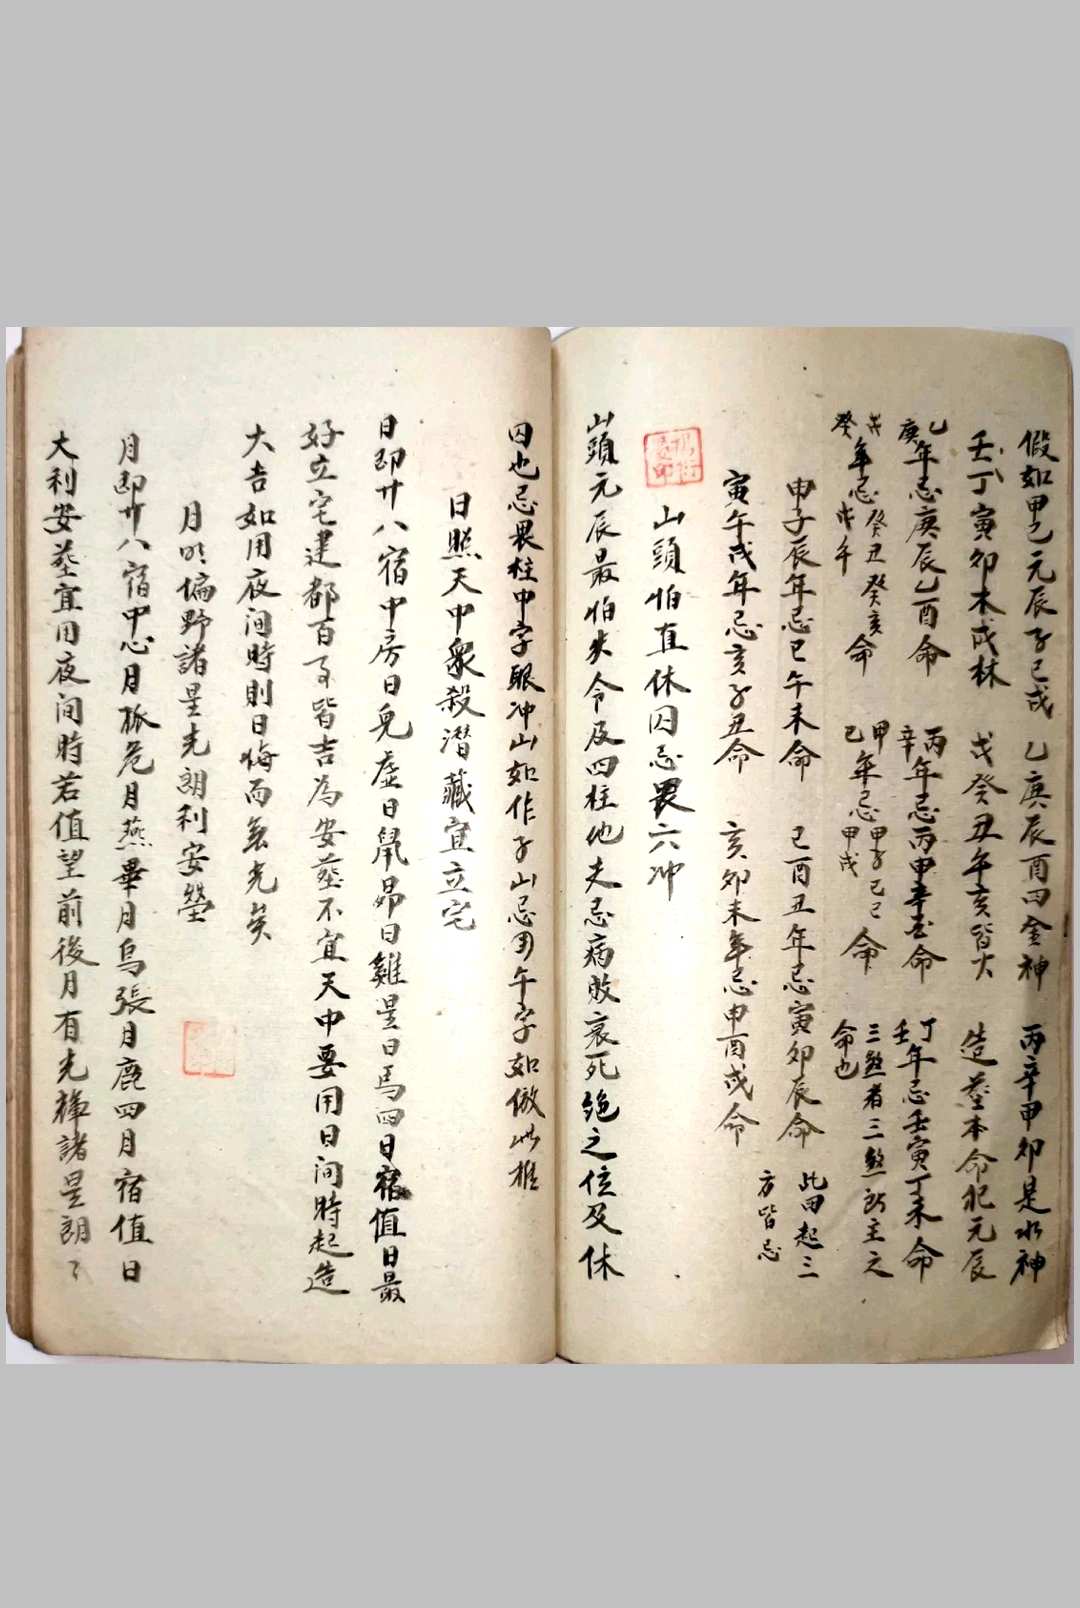 假如甲己元辰子巳戌　乙庚辰酉四金神　丙辛甲卯是水神
壬丁寅卯木成林　戊癸丑午亥皆火　造塟本命犯元辰
乙庚年忌庚辰乙酉命　丙辛年忌丙申辛丑命　丁壬年忌壬寅丁未命
戊癸年忌癸丑癸亥戊午命　甲己年忌甲子己巳甲戌命　三煞者三煞所主之命也
申子辰年忌巳午未命　巳酉丑年忌寅卯辰命　此四起三方皆忌
寅午戌年忌亥子丑命　亥卯未年忌申酉戌命
山頭怕直休囚忌畏六冲
山頭元辰最怕失令及四柱他夫忌病敗衰死絶之位及休
囚也忌畏柱中字眼冲山如作子山忌用午字如倣此推
日照天中衆殺潜藏宜立宅
日即廿八宿中房日兎虚日鼠昴日雞星日馬四日宿值日最
好立宅建都百事皆吉為安塟不宜天中要用日间時起造
大吉如用夜间時則日悔而無光矣
月明徧野諸星光朗利安塋
月即廿八宿中心月狐危月燕畢月烏張月鹿四月宿值日
大利安塟宜用夜间時若值望前後月有光輝諸星朗々